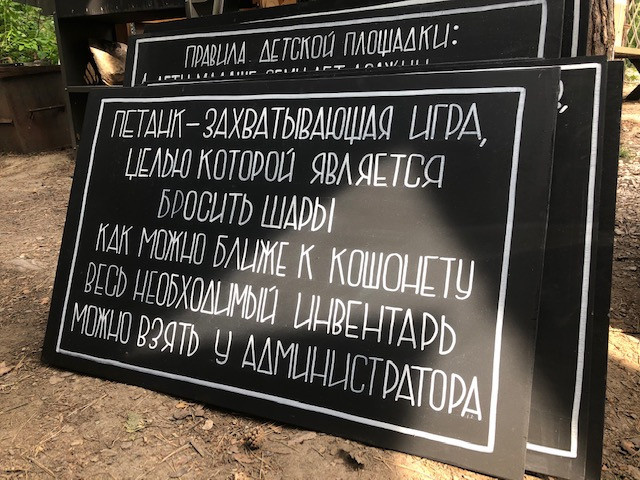 ПРАВИЛА ДЕТСКОЙ ПЛОЩАДКИ:
ПЕТАНК – ЗАХВАТЫВАЮЩАЯ ИГРА,
ЦЕЛЬЮ КОТОРОЙ ЯВЛЯЕТСЯ
БРОСИТЬ ШАРЫ
КАК МОЖНО БЛИЖЕ К КОШОНЕТУ
ВЕСЬ НЕОБХОДИМЫЙ ИНВЕНТАРЬ
МОЖНО ВЗЯТЬ У АДМИНИСТРАТОРА